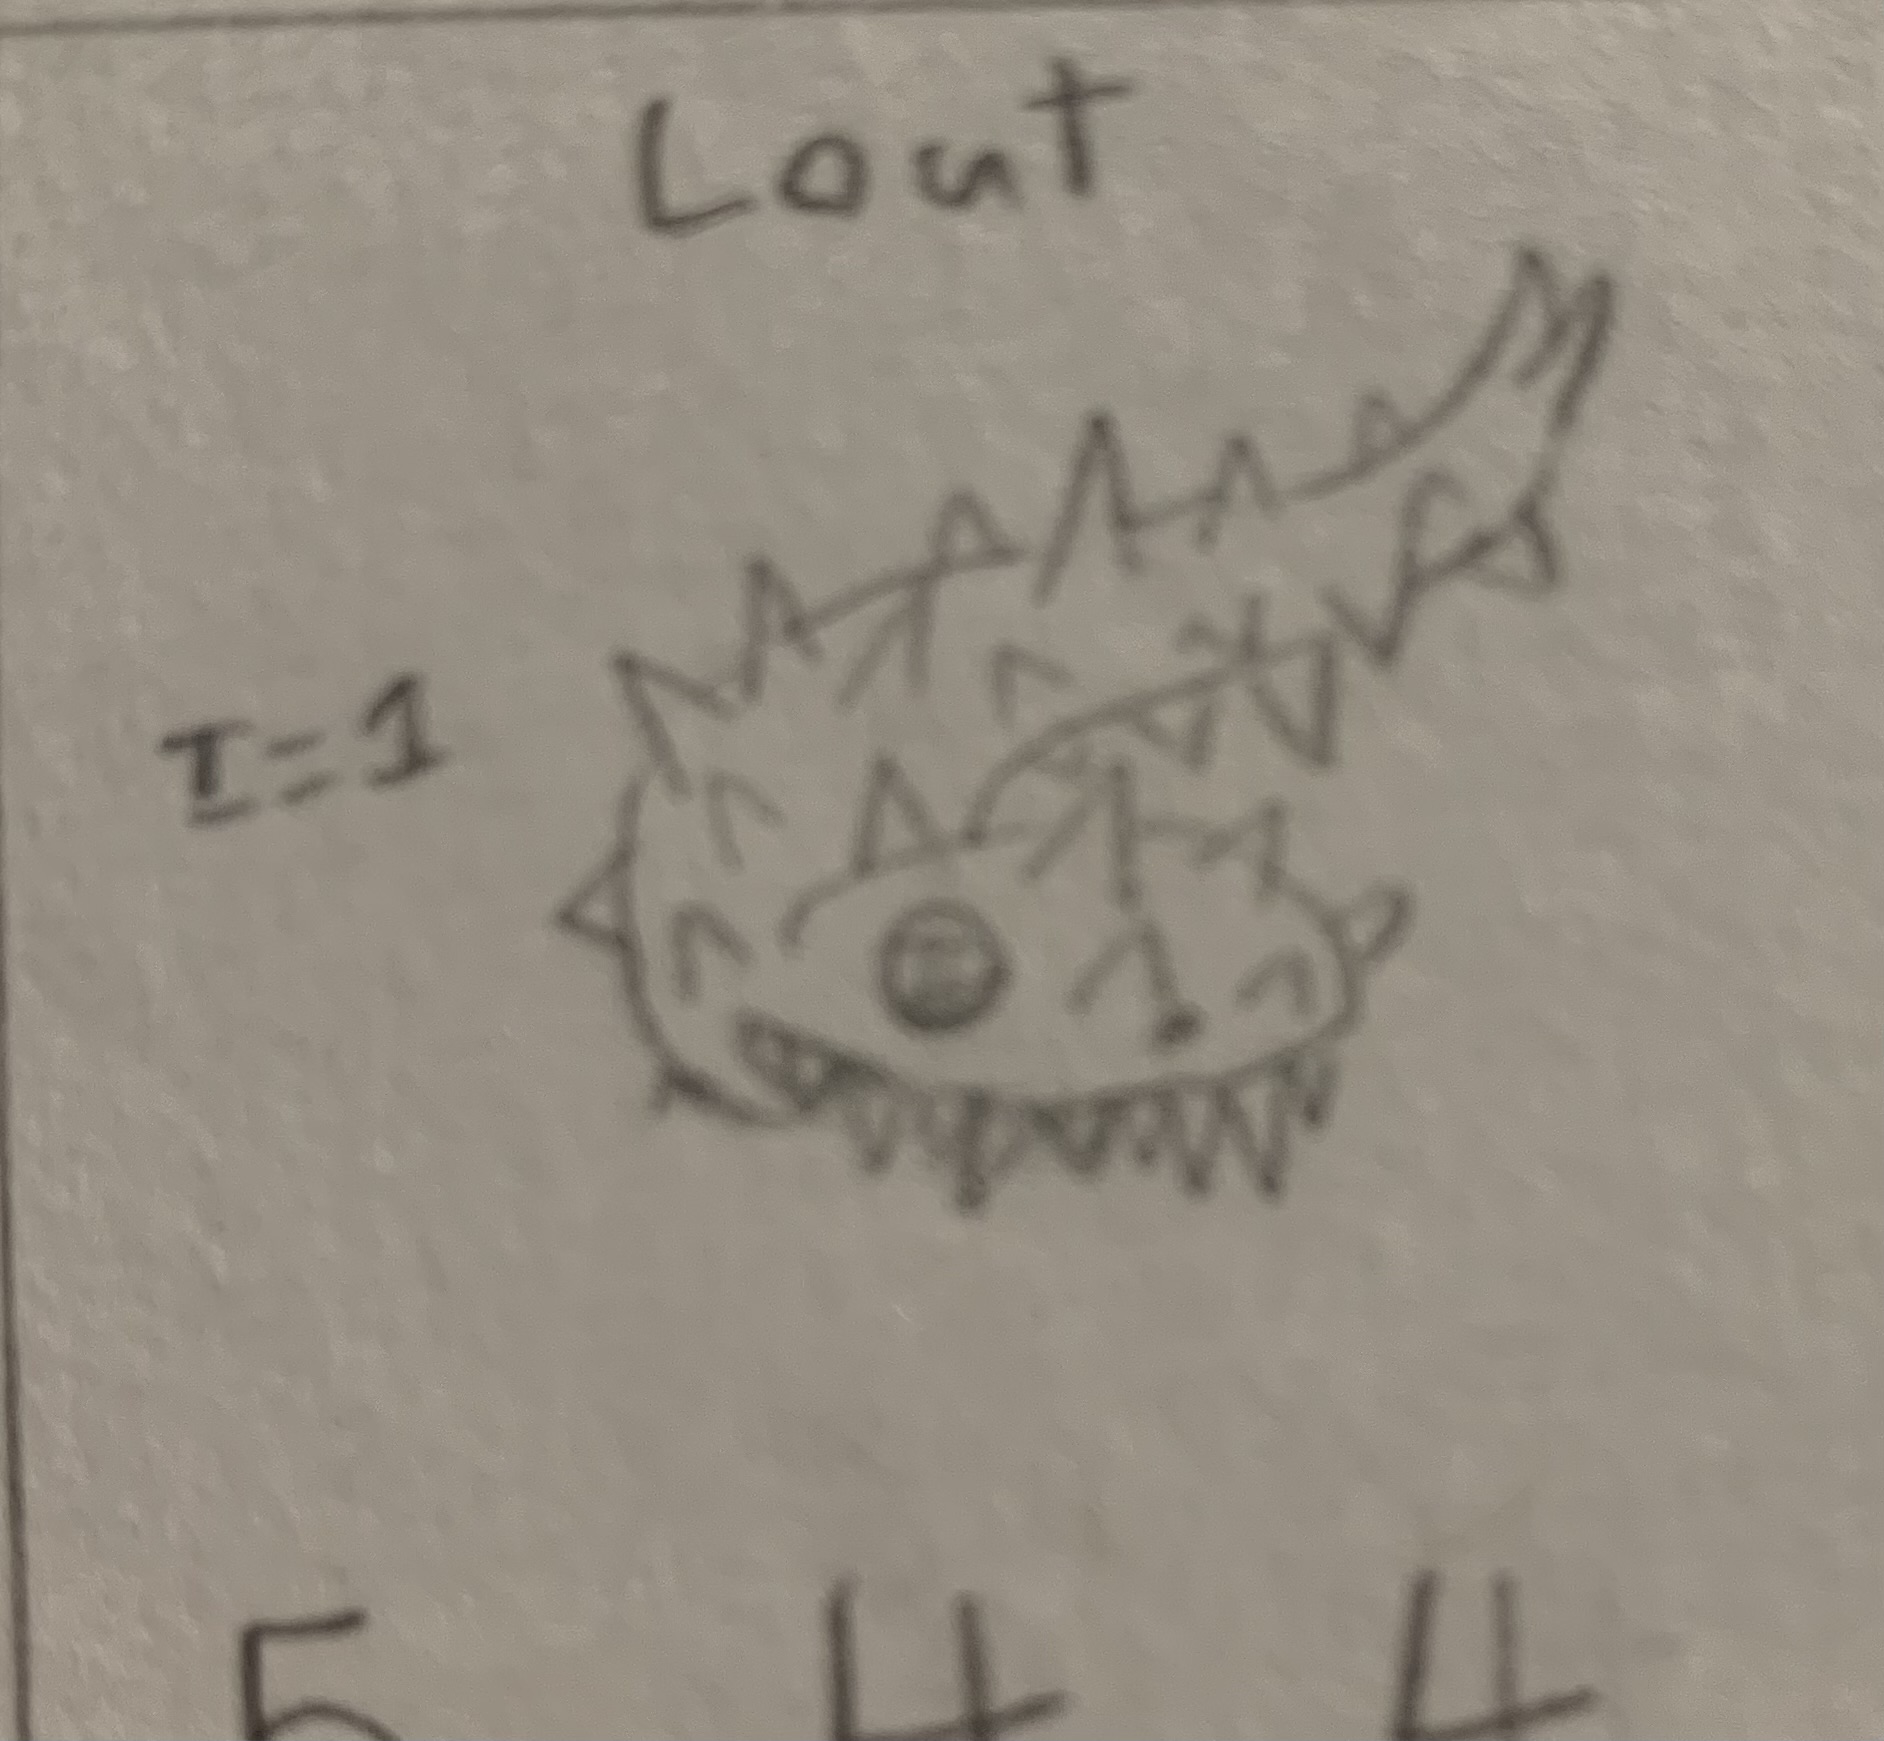 Lout
I=1
5 4 4